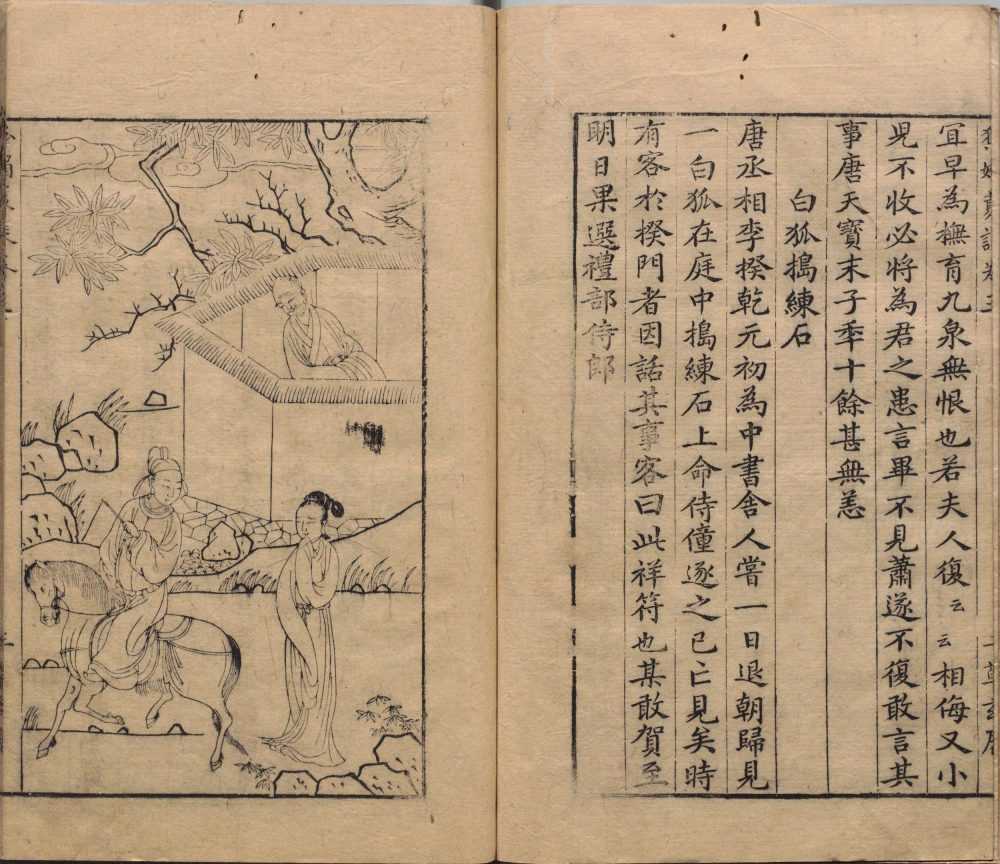 宜早為撫育九泉無恨也若夫人復云云相侮又小
児不收必將為君之患言畢不見蕭遂不復敢言其
事唐天寶末子秊十餘甚無恙
白狐搗練石
唐丞相李揆乾元初為中書舍人嘗一日退朝歸見
一白狐在庭中搗練石上命侍僮逐之已亡見矣時
有客於揆門者因話其事客曰此祥符也某敢賀至
明日果選禮部侍郎